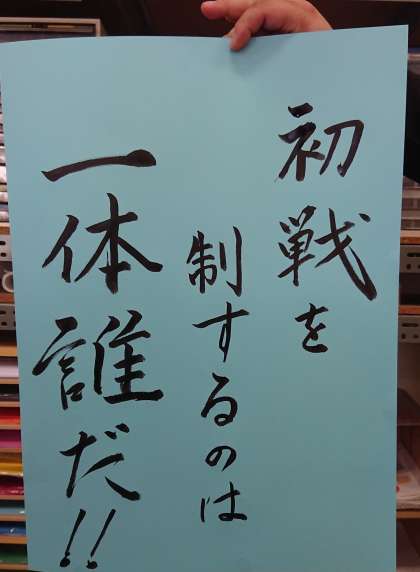 初戦を
制するのは
一体誰だ!!